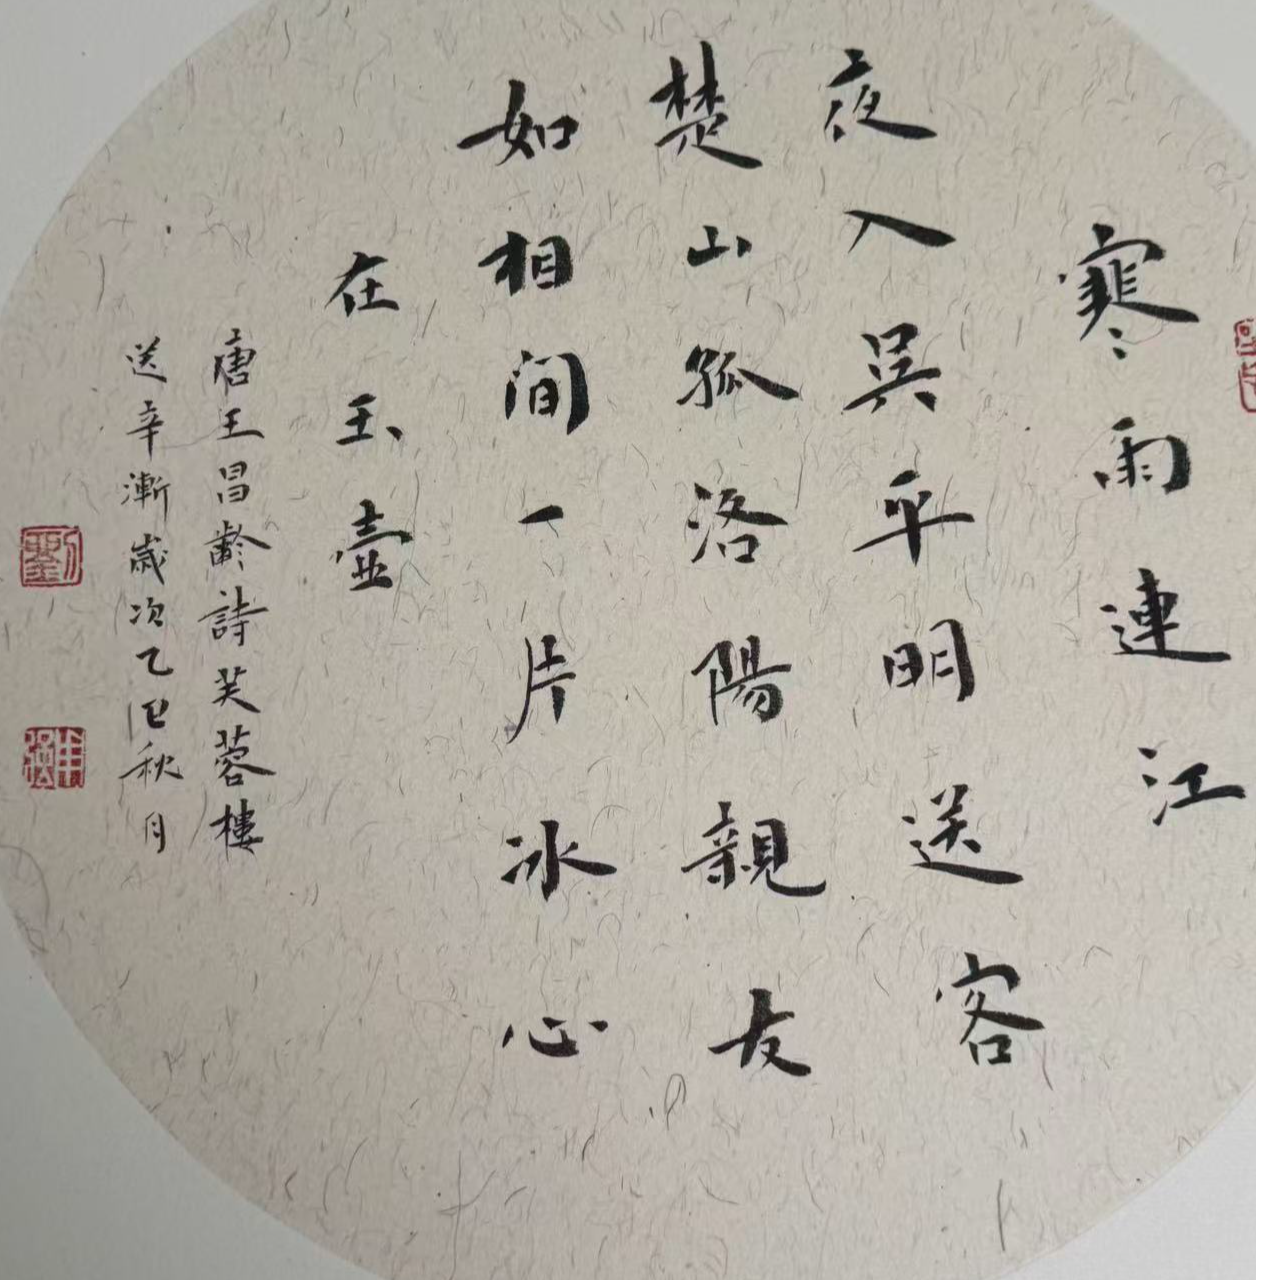 寒雨連江
夜入吳平明送客
楚山孤洛陽親友
如相间一片冰心
在玉壺
唐王昌齡詩芙蓉樓
送辛漸歲次乙巳秋月